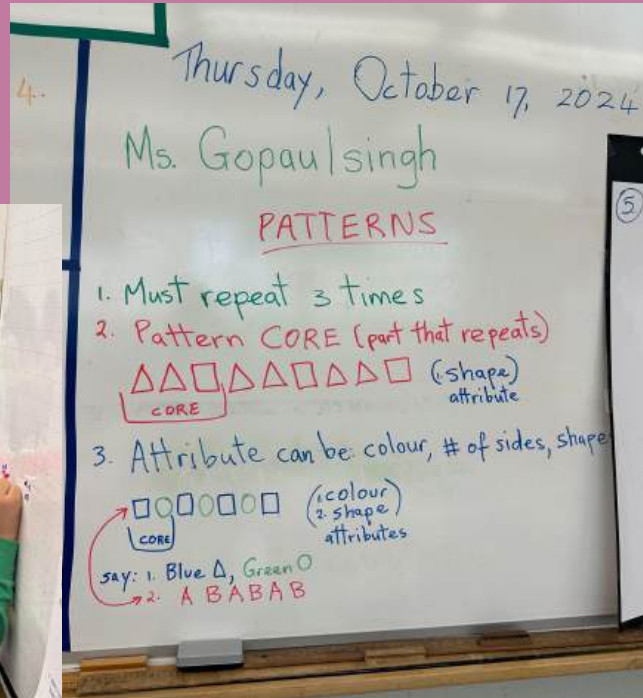 4.
Thursday, October 17, 2024
Ms. Gopaulsingh
PATTERNS
5
1. Must repeat 3 times
2. Pattern CORE (part that repeats)
△△□△△□△△□ (shape)
attribute
CORE
3. Attribute can be: colour, # of sides, shape
□○□○□○□ (1. colour
2. shape)
attributes
CORE
say: 1. Blue △, Green ○
2. A B A B A B